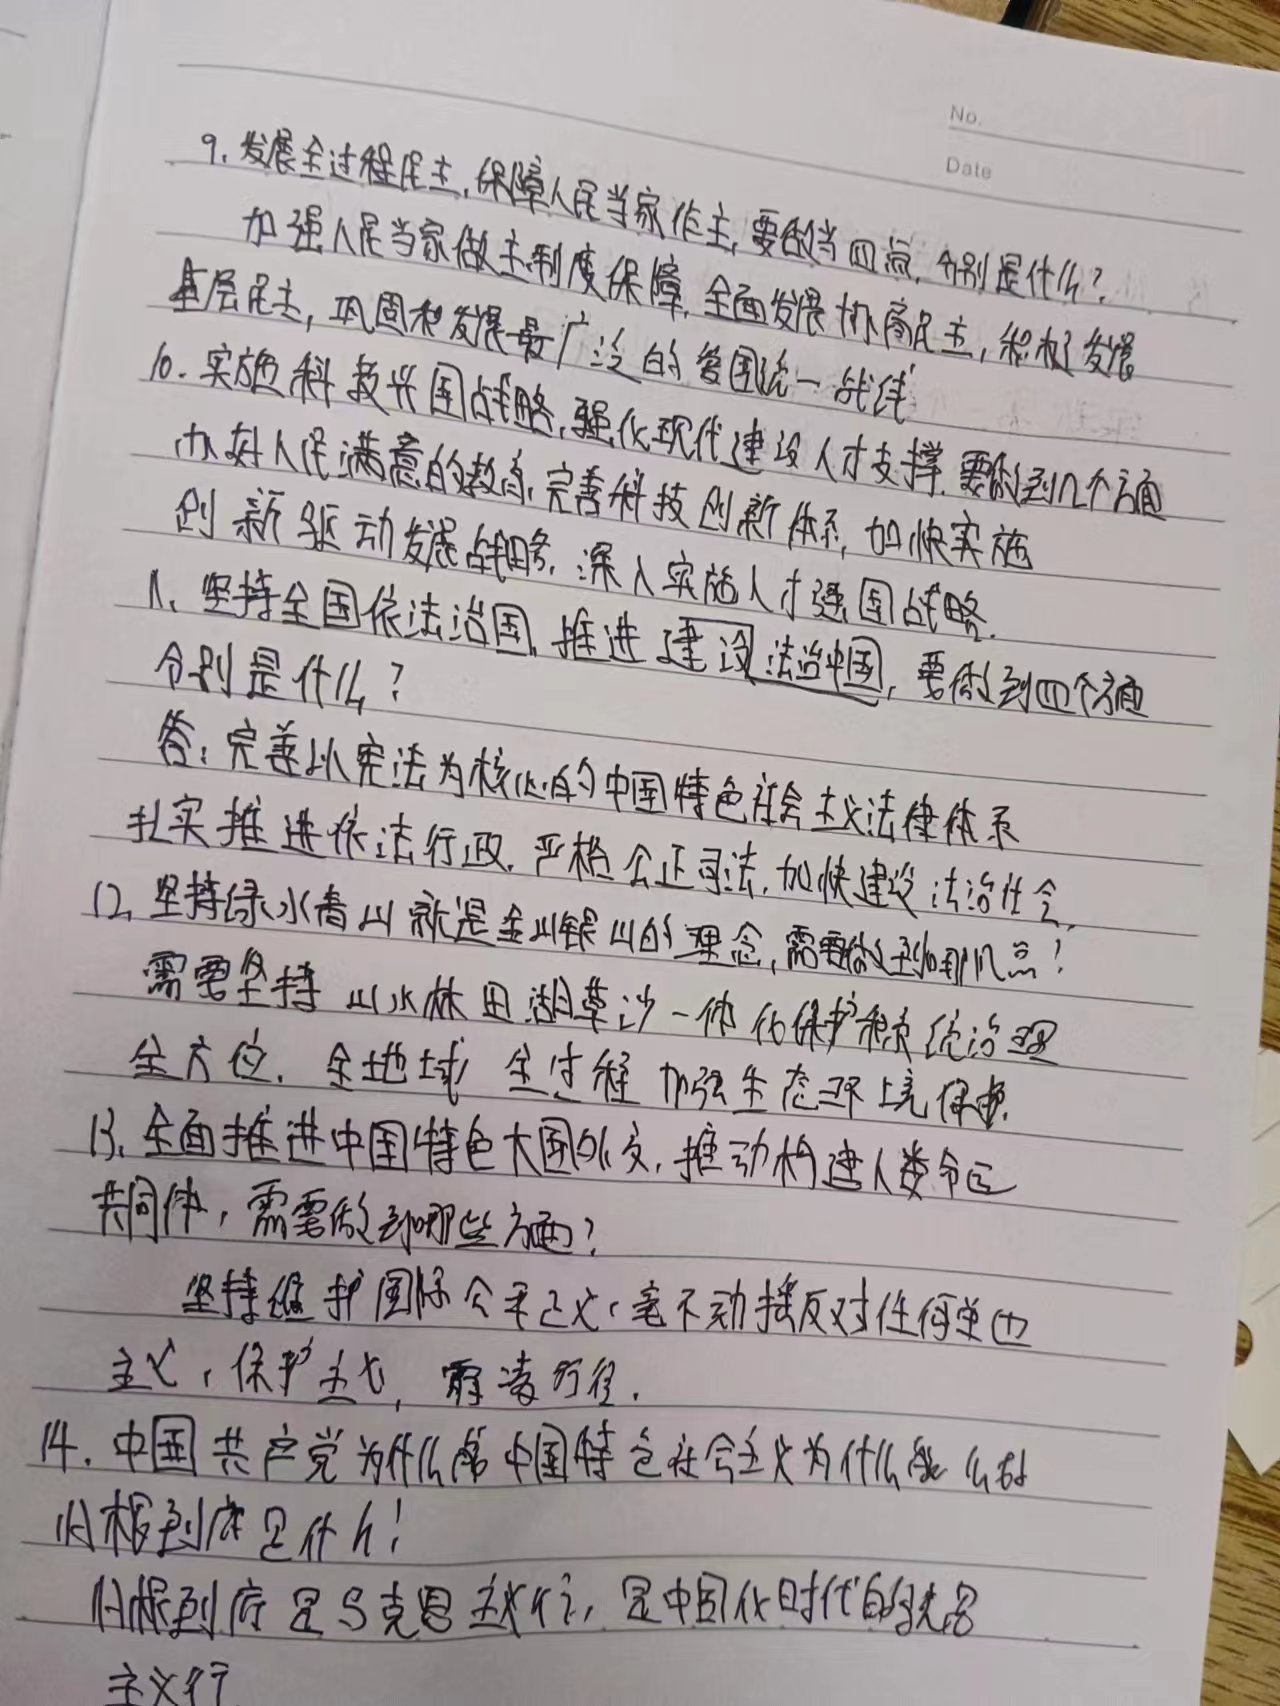 No.
Date
9. 发展全过程民主,保障人民当家作主,要做当四点,分别是什么?
加强人民当家做主制度保障,全面发展协商民主,积极发展
基层民主,巩固和发展最广泛的爱国统一战线
10. 实施科教兴国战略,强化现代建设人才支撑.要做到几个方面
办好人民满意的教育,完善科技创新体系,加快实施
创新驱动发展战略,深入实施人才强国战略.
11、坚持全国依法治国,推进建设法治中国,要做到四个方面
分别是什么?
答:完善以宪法为核心的中国特色社会主义法律体系
扎实推进依法行政.严格公正司法,加快建设法治社会,
12,坚持绿水青山就是金山银山的理念,需要做到哪几点?
需要坚持山水林田湖草沙一体化保护和系统治理
全方位.全地域 全过程 加强生态环境保护.
13.全面推进中国特色大国外交,推动构建人类命运
共同体,需要做到哪些方面?
坚持维护国际公平正义,毫不动摇反对任何单边
主义,保护主义,霸凌行径.
14.中国共产党为什么能 中国特色社会主义为什么能 么好
归根到底是什么!
归根到底是马克思主义行,是中国化时代的克思
主义行